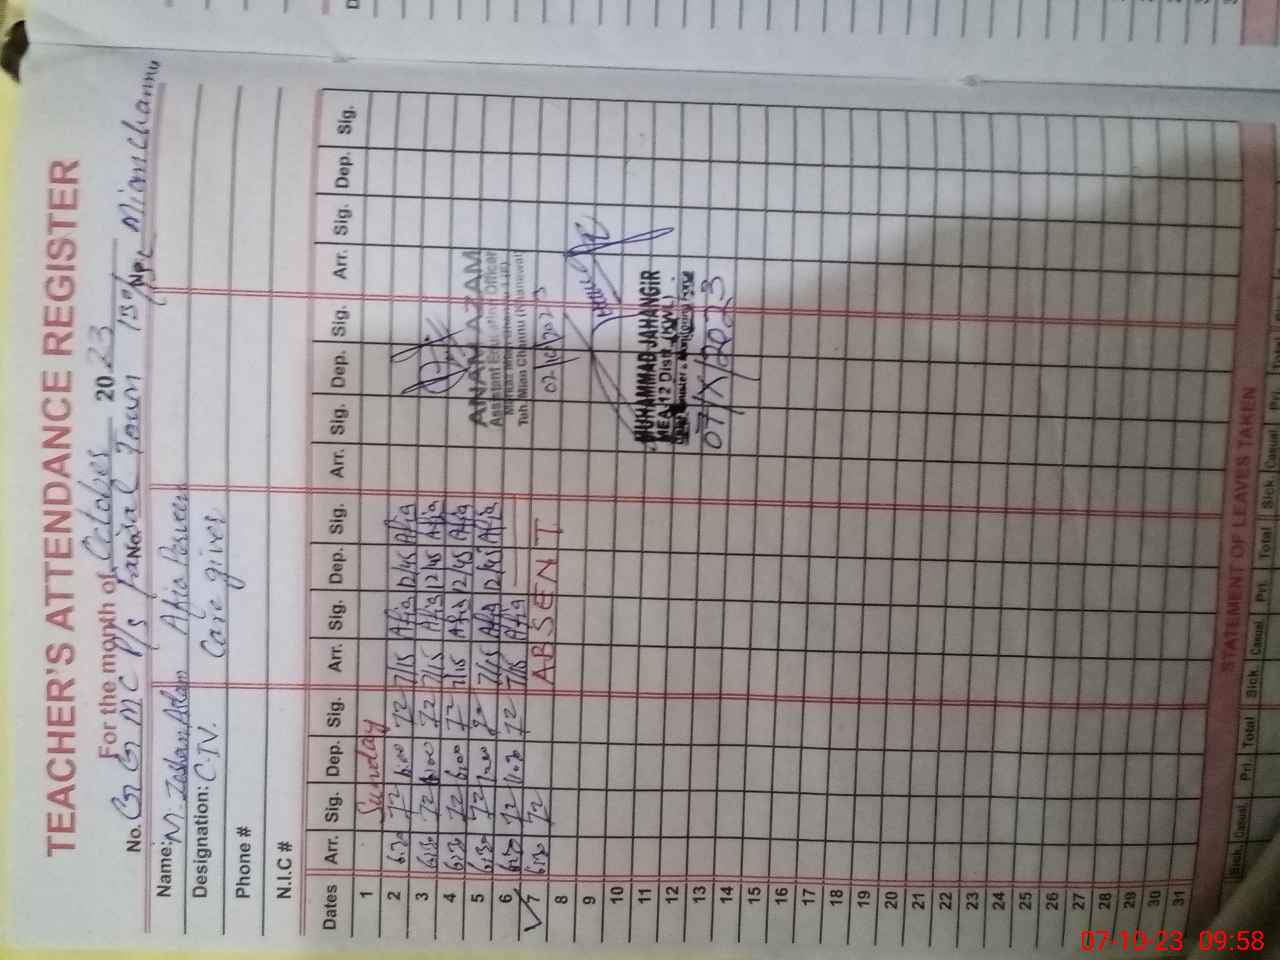 TEACHER'S ATTENDANCE REGISTER
For the month of October 2023
No. G G M C P/S Town 130 Mianchannu
Name: M. Zeshan Aslam Afia Parveen
Designation: C.IV. Care giver
Phone #
N.I.C #
Dates Arr. Sig. Dep. Sig. Arr. Sig. Dep. Sig. Arr. Sig. Dep. Sig. Arr. Sig. Dep. Sig.
1 Sunday
2 6:30 6:00 7/15 Afia 12/45 Afia
3 6:30 6:00 7/15 Afia 12/45 Afia
4 6:30 6:00 7/15 Afia 12/45 Afia
5 6:30 7/15 Afia 12/45 Afia
6 6:30 7/15 Afia
7 6:30 ABSENT
8
9
10
11
12
13
14
15
16
17
18
19
20
21
22
23
24
25
26
27
28
29
30
31
ANAM AZAM
Assistant Education Officer
Teh. Mian Channu (Khanewal)
02/10/2023
MUHAMMAD JAHANGIR
MEA 12 Distt. (KWL)
07/X/2023
STATEMENT OF LEAVES TAKEN
Sick. Casual. Pri Total Sick. Casual Pri. Total Sick. Casual Pri.
07-10-23 09:58